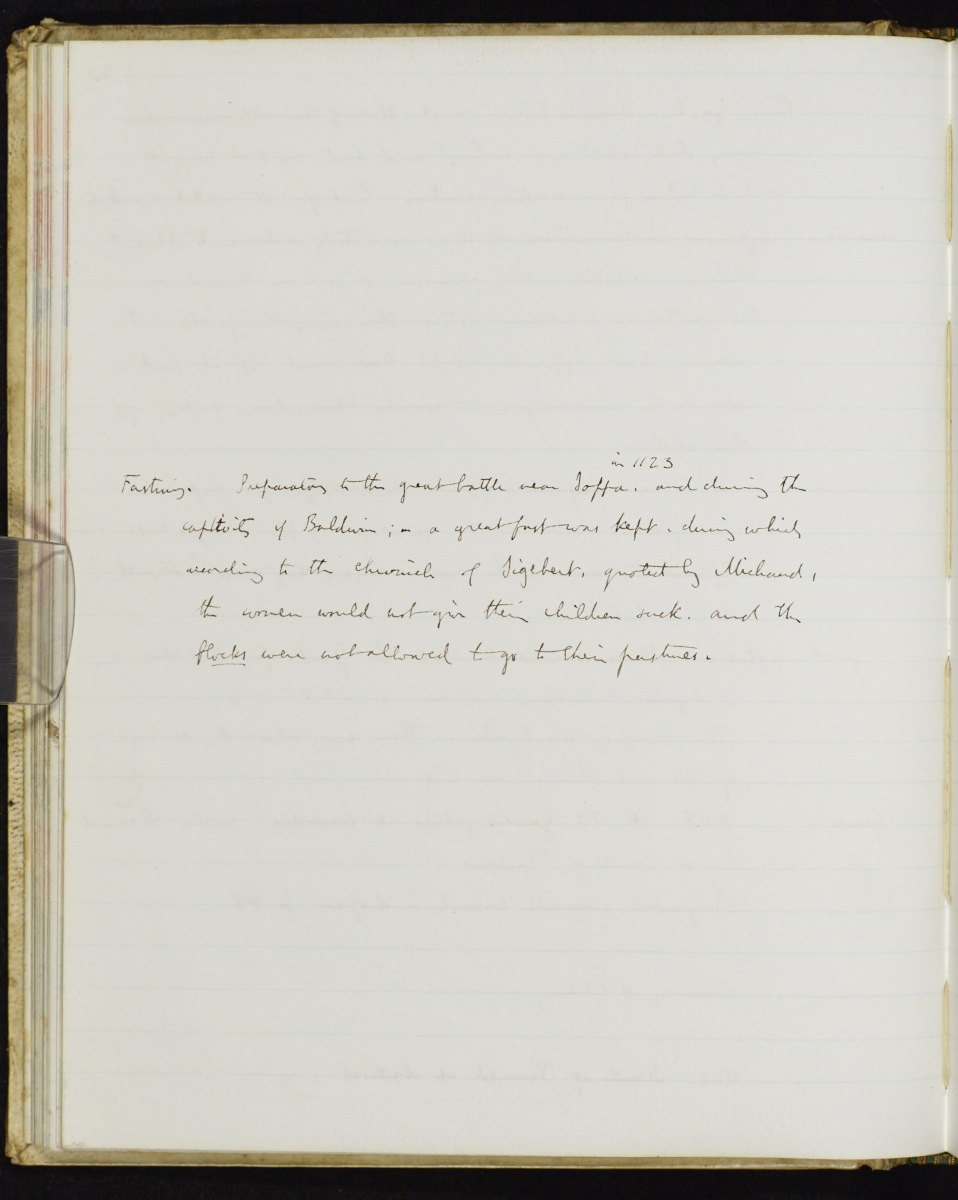 in 1123
Fasting. Preparatory to the great battle near Joppa. and during the
captivity of Baldwin; a great fast was kept. during which
according to the chronicle of Sigebert, quoted by Michaud,
the women would not give their children suck. and the
flocks were not allowed to go to their pastures.